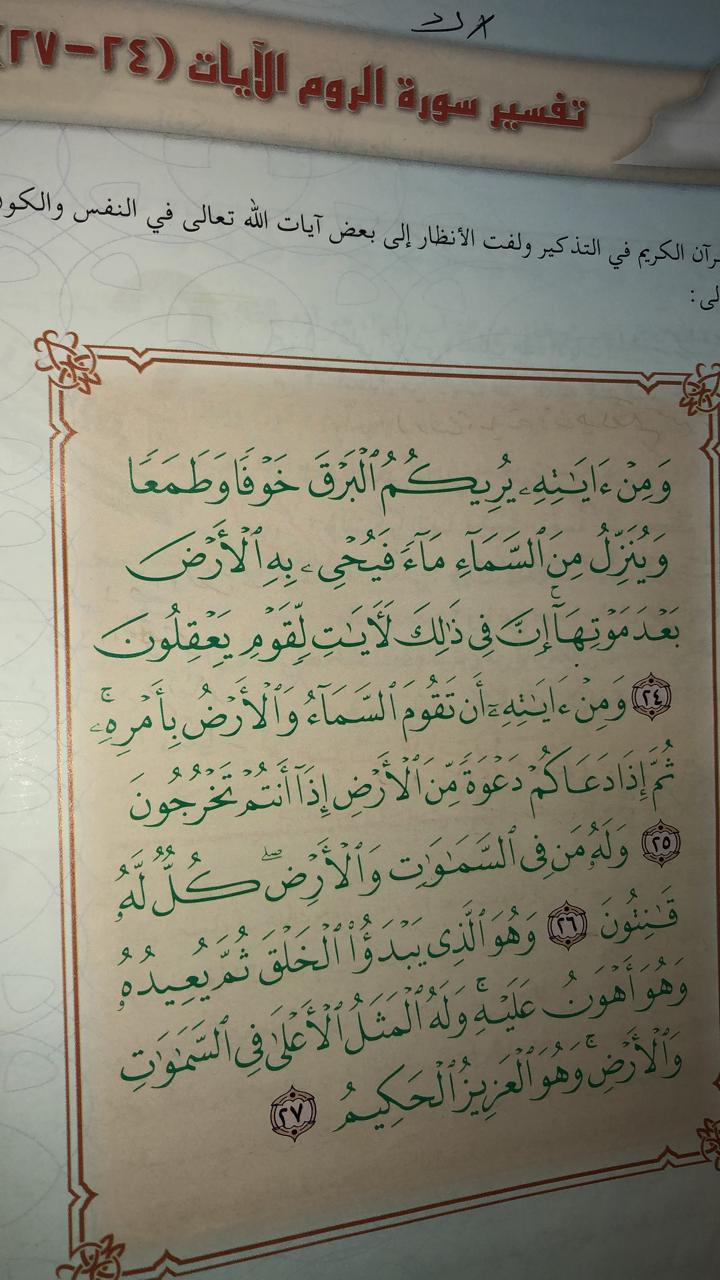 تفسير سورة الروم الآيات (٢٤-٢٧)
الكريم في التذكير ولفت الأنظار إلى بعض آيات الله تعالى في النفس والكون
وَمِنْ ءَايَٰتِهِۦ يُرِيكُمُ ٱلْبَرْقَ خَوْفًا وَطَمَعًا
وَيُنَزِّلُ مِنَ ٱلسَّمَآءِ مَآءً فَيُحْىِۦ بِهِ ٱلْأَرْضَ
بَعْدَ مَوْتِهَآ ۚ إِنَّ فِى ذَٰلِكَ لَءَايَٰتٍ لِّقَوْمٍ يَعْقِلُونَ
٢٤ وَمِنْ ءَايَٰتِهِۦٓ أَن تَقُومَ ٱلسَّمَآءُ وَٱلْأَرْضُ بِأَمْرِهِۦ ۚ
ثُمَّ إِذَا دَعَاكُمْ دَعْوَةً مِّنَ ٱلْأَرْضِ إِذَآ أَنتُمْ تَخْرُجُونَ
٢٥ وَلَهُۥ مَن فِى ٱلسَّمَٰوَٰتِ وَٱلْأَرْضِ ۖ كُلٌّ لَّهُۥ
قَٰنِتُونَ ٢٦ وَهُوَ ٱلَّذِى يَبْدَؤُا۟ ٱلْخَلْقَ ثُمَّ يُعِيدُهُۥ
وَهُوَ أَهْوَنُ عَلَيْهِ ۚ وَلَهُ ٱلْمَثَلُ ٱلْأَعْلَىٰ فِى ٱلسَّمَٰوَٰتِ
وَٱلْأَرْضِ ۚ وَهُوَ ٱلْعَزِيزُ ٱلْحَكِيمُ ٢٧